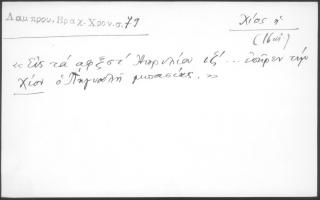 Λάμπρου, Βραχ. Χρον. σ. 79
Χίος ἡ
(16ος)
« Εἰς τὰ αφξςτ' Ἀπριλίου ιξ' ... ἐπῆρεν τὴν
Χίον ὁ Πιγιαλῆ μπασίας. »